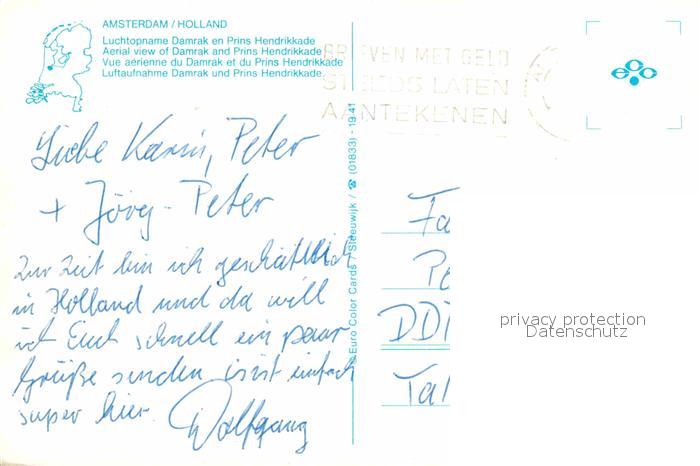 AMSTERDAM / HOLLAND
Luchtopname Damrak en Prins Hendrikkade
Aerial view of Damrak and Prins Hendrikkade
Vue aérienne du Damrak et du Prins Hendrikkade
Luftaufnahme Damrak und Prins Hendrikkade
BRIEVEN MET GELD
STEEDS LATEN
AANTEKENEN
Liebe Karin, Peter
+ Jörg-Peter
Zur Zeit bin ich geschäftlich
in Holland und da will
ich Euch schnell ein paar
Grüße senden isist einfach
super hier. Wolfgang
© Euro Color Cards / Sleeuwijk / ☎ (01833) - 19 41
Fa
Pe
DDR
Tal
privacy protection
Datenschutz